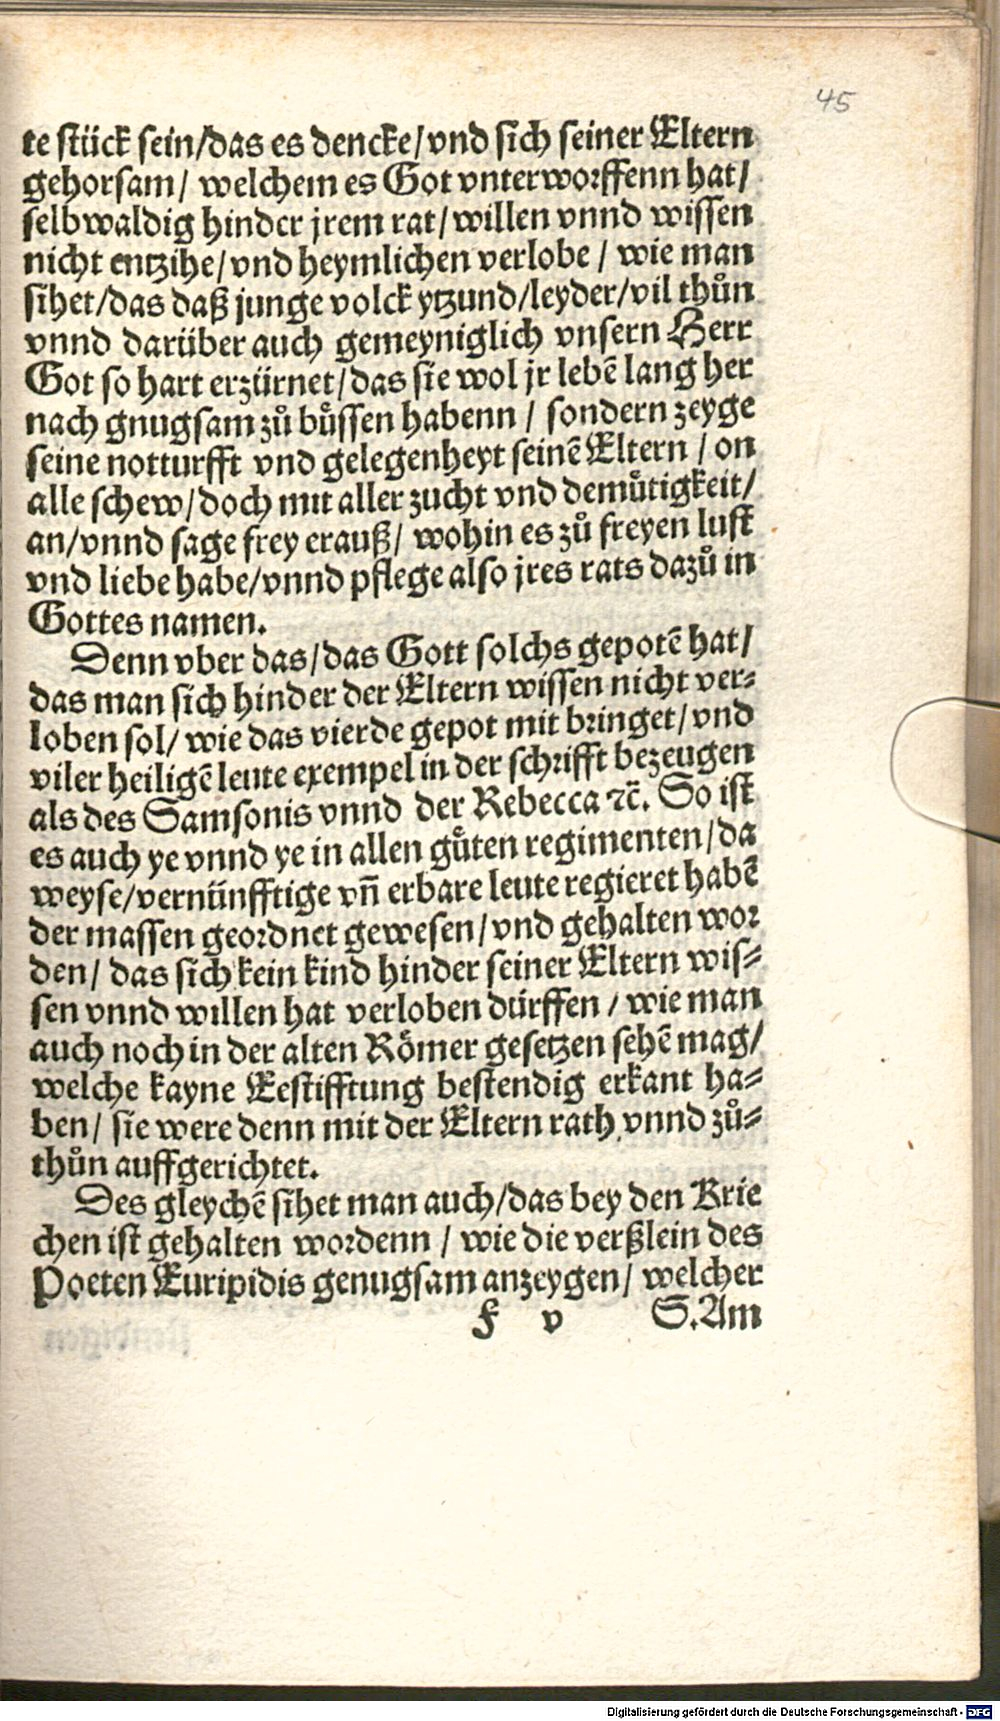 45
te stück sein/das es dencke/vnd sich seiner Eltern
gehorsam/ welchem es Got vnterworffenn hat/
selbwaldig hinder jrem rat/willen vnnd wissen
nicht entzihe/vnd heymlichen verlobe / wie man
sihet/das daß junge volck ytzund/leyder/vil thůn
vnnd darüber auch gemeyniglich vnsern Herr
Got so hart erzürnet/das sie wol jr lebē lang her
nach gnugsam zů bůssen habenn / sondern zeyge
seine notturfft vnd gelegenheyt seinē Eltern / on
alle schew/doch mit aller zucht vnd demůtigkeit/
an/vnnd sage frey erauß/ wohin es zů freyen lust
vnd liebe habe/vnnd pflege also jres rats dazů in
Gottes namen.
Denn vber das/das Gott solchs gepotē hat/
das man sich hinder der Eltern wissen nicht ver⸗
loben sol/ wie das vierde gepot mit bringet/vnd
viler heiligē leute exempel in der schrifft bezeugen
als des Samsonis vnnd der Rebecca ꝛc̄. So ist
es auch ye vnnd ye in allen gůten regimenten/da
weyse/vernünfftige vn̄ erbare leute regieret habē
der massen geordnet gewesen/vnd gehalten wor
den/ das sich kein kind hinder seiner Eltern wis⸗
sen vnnd willen hat verloben dürffen / wie man
auch noch in der alten Römer gesetzen sehē mag/
welche kayne Eestifftung bestendig erkant ha⸗
ben/ sie were denn mit der Eltern rath vnnd zů⸗
thůn auffgerichtet.
Des gleychē sihet man auch/das bey den Krie
chen ist gehalten wordenn / wie die verßlein des
Poeten Euripidis genugsam anzeygen/ welcher
F v S.Am
Digitalisierung gefördert durch die Deutsche Forschungsgemeinschaft - DFG